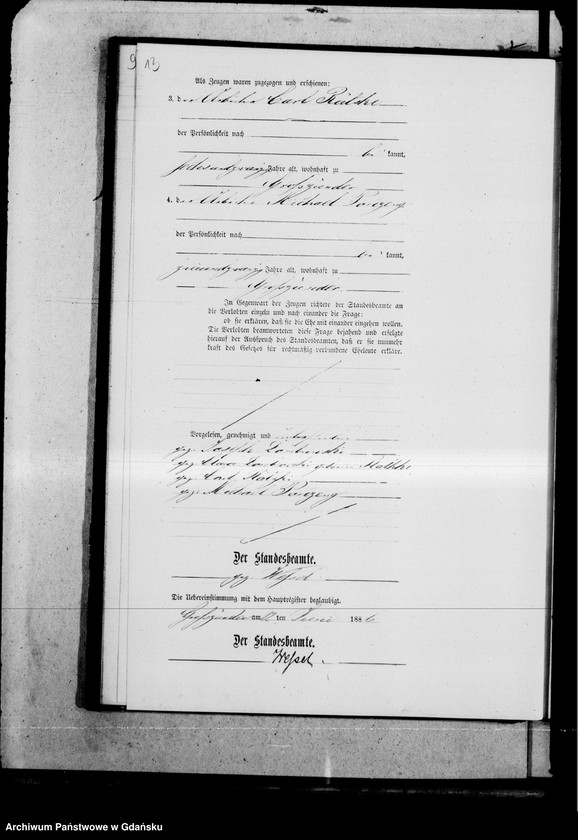 9 13
Als Zeugen waren zugezogen und erschienen:
3. der Arbeiter Carl
der Persönlichkeit nach
be kannt,
Jahre alt, wohnhaft zu
Großzünder
4. der Arbeiter Michael
der Persönlichkeit nach
be kannt,
Jahre alt, wohnhaft zu
Großzünder
In Gegenwart der Zeugen richtete der Standesbeamte an
die Verlobten einzeln und nach einander die Frage:
ob sie erklären, daß sie die Ehe mit einander eingehen wollen.
Die Verlobten beantworteten diese Frage bejahend und erfolgte
hierauf der Ausspruch des Standesbeamten, daß er sie nunmehr
kraft des Gesetzes für rechtmäßig verbundene Eheleute erkläre.
Vorgelesen, genehmigt und unterschrieben
gez. Joseph
gez. geborene
gez. Carl
gez. Michael
Der Standesbeamte.
gez. Wessel
Die Uebereinstimmung mit dem Hauptregister beglaubigt.
Großzünder am ten 188
Der Standesbeamte.
Wessel.
Archiwum Państwowe w Gdańsku